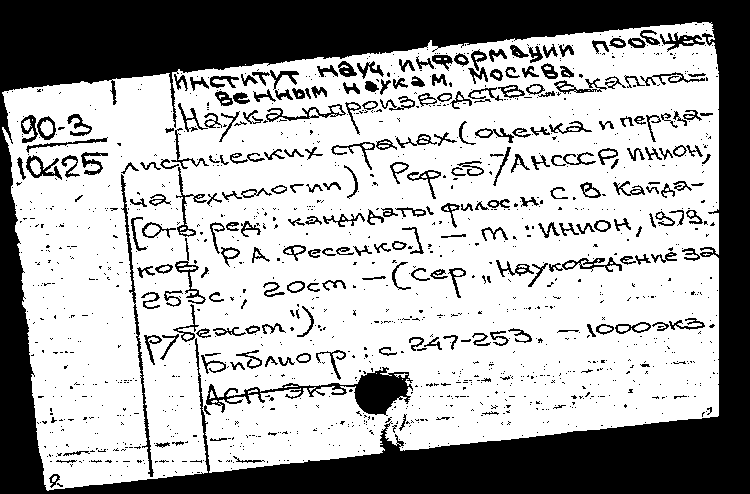 институт науч. информации пообщест-
венным наукам. Москва.
Наука и производство в капита-
90-3
10425
листических странах (оценка и переда-
ча технологии): Реф. сб. / АНСССР, ИНИОН;
[Отв. ред.: кандидаты филос. н. С. В. Кайда-
ков, Р. А. Фесенко]. — М.: ИНИОН, 1979. -
253с.; 20см. — (Сер. „Науковедение за
рубежом.").
Библиогр.: с. 247-253. — 1000экз.
ДСП. Экз.
2